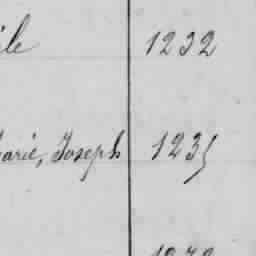 ile 1232
arie, Joseph 1235